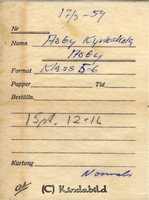 17/3-59
Nr
Namn Asby Kyrkskola
Asby
Format Klass 5-6
Papper Tid
Beställn.
1 Spt. 12-16
Kartong
Normal
(C) Kindabild